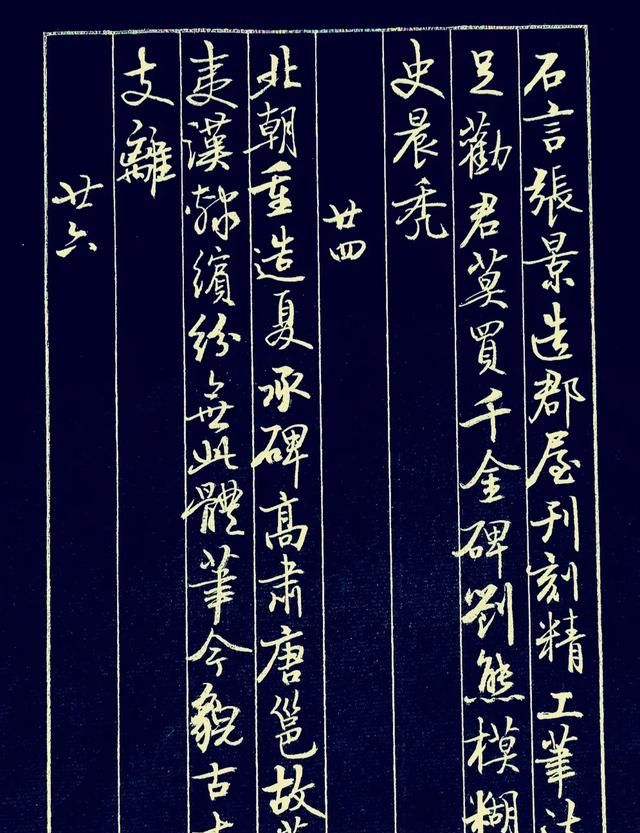 石言張景造郡屋刊刻精工筆
足勸君莫買千金碑劉熊模糊
史晨禿
廿四
北朝重造夏承碑高肅唐邕故
夷漢隸繽紛無此體筆今貌古
支離
廿六